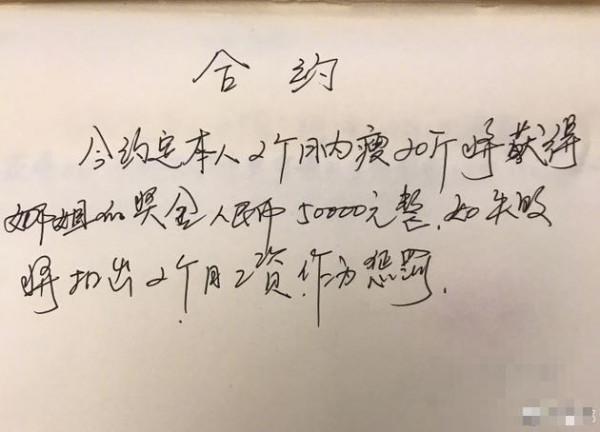 合约
今约定本人2个月内瘦20斤将获得
姐姐的奖金人民币50000元整.如失败
将扣出2个月工资.作为惩罚.